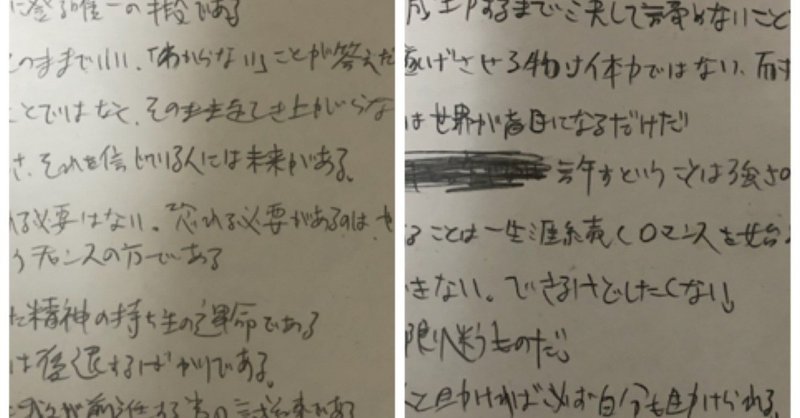 に登る唯一の手段である
このままでいい、「わからない」ことが答えだ
ことではなく、そのまま起き上がらな
さ、それを信じている人には未来がある。
れる必要はない。恐れる必要があるのは、
うチャンスの方である
た精神の持ち主の運命である
は後退するばかりである。
が前進する為の
がある
成功するまで決して諦めないこと
遂げさせる物は体力ではない、耐
は世界が盲目になるだけだ
許すということは強さの
ることは一生涯続くロマンスを始
きない。できるけどしたくない。
限り迷うものだ。
助ければ必ず自分も助けられる。